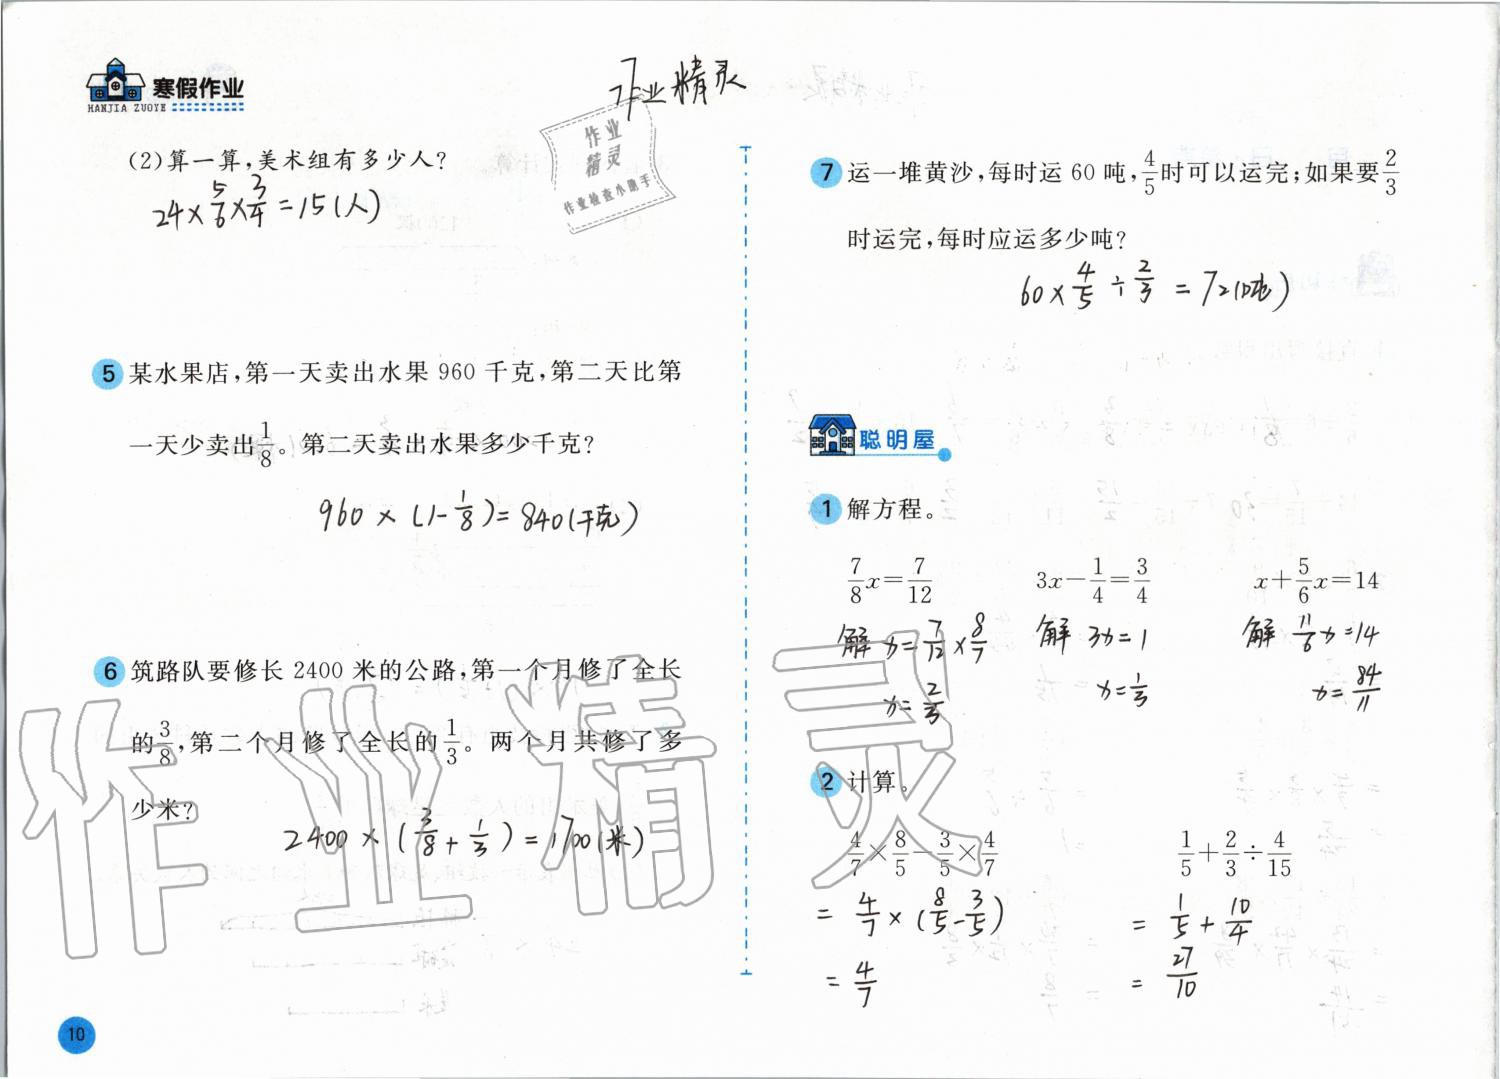 寒假作业
HANJIA ZUOYE
作业精灵
作业
精灵
作业检查小助手
(2)算一算,美术组有多少人?
24×5/6×3/4=15(人)
5 某水果店,第一天卖出水果 960 千克,第二天比第
一天少卖出1/8。第二天卖出水果多少千克?
960×(1-1/8)=840(千克)
6 筑路队要修长 2400 米的公路,第一个月修了全长
的3/8,第二个月修了全长的1/3。两个月共修了多
少米?
2400×(3/8+1/3)=1700(米)
10
7 运一堆黄沙,每时运 60 吨,4/5时可以运完;如果要2/3
时运完,每时应运多少吨?
60×4/5÷2/3=72(吨)
聪明屋
1 解方程。
7/8x=7/12 3x-1/4=3/4 x+5/6x=14
解 x=7/12×8/7 解 3x=1 解 11/6x=14
x=2/3 x=1/3 x=84/11
2 计算。
4/7×8/5-3/5×4/7 1/5+2/3÷4/15
=4/7×(8/5-3/5) =1/5+10/4
=4/7 =27/10
作业精灵